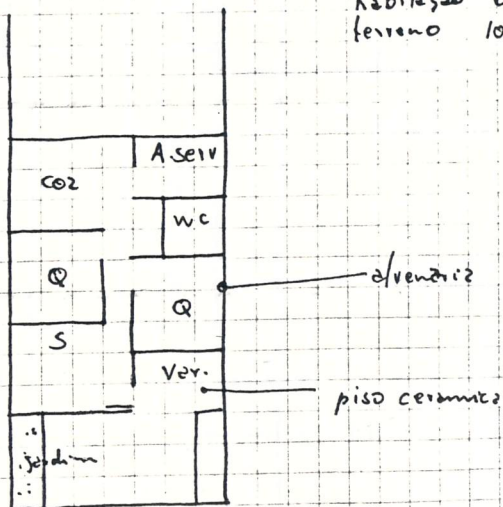 terreno 10
A.serv
coz
wc
Q
alvenaria
Q
S
Var.
piso ceramica
jardim